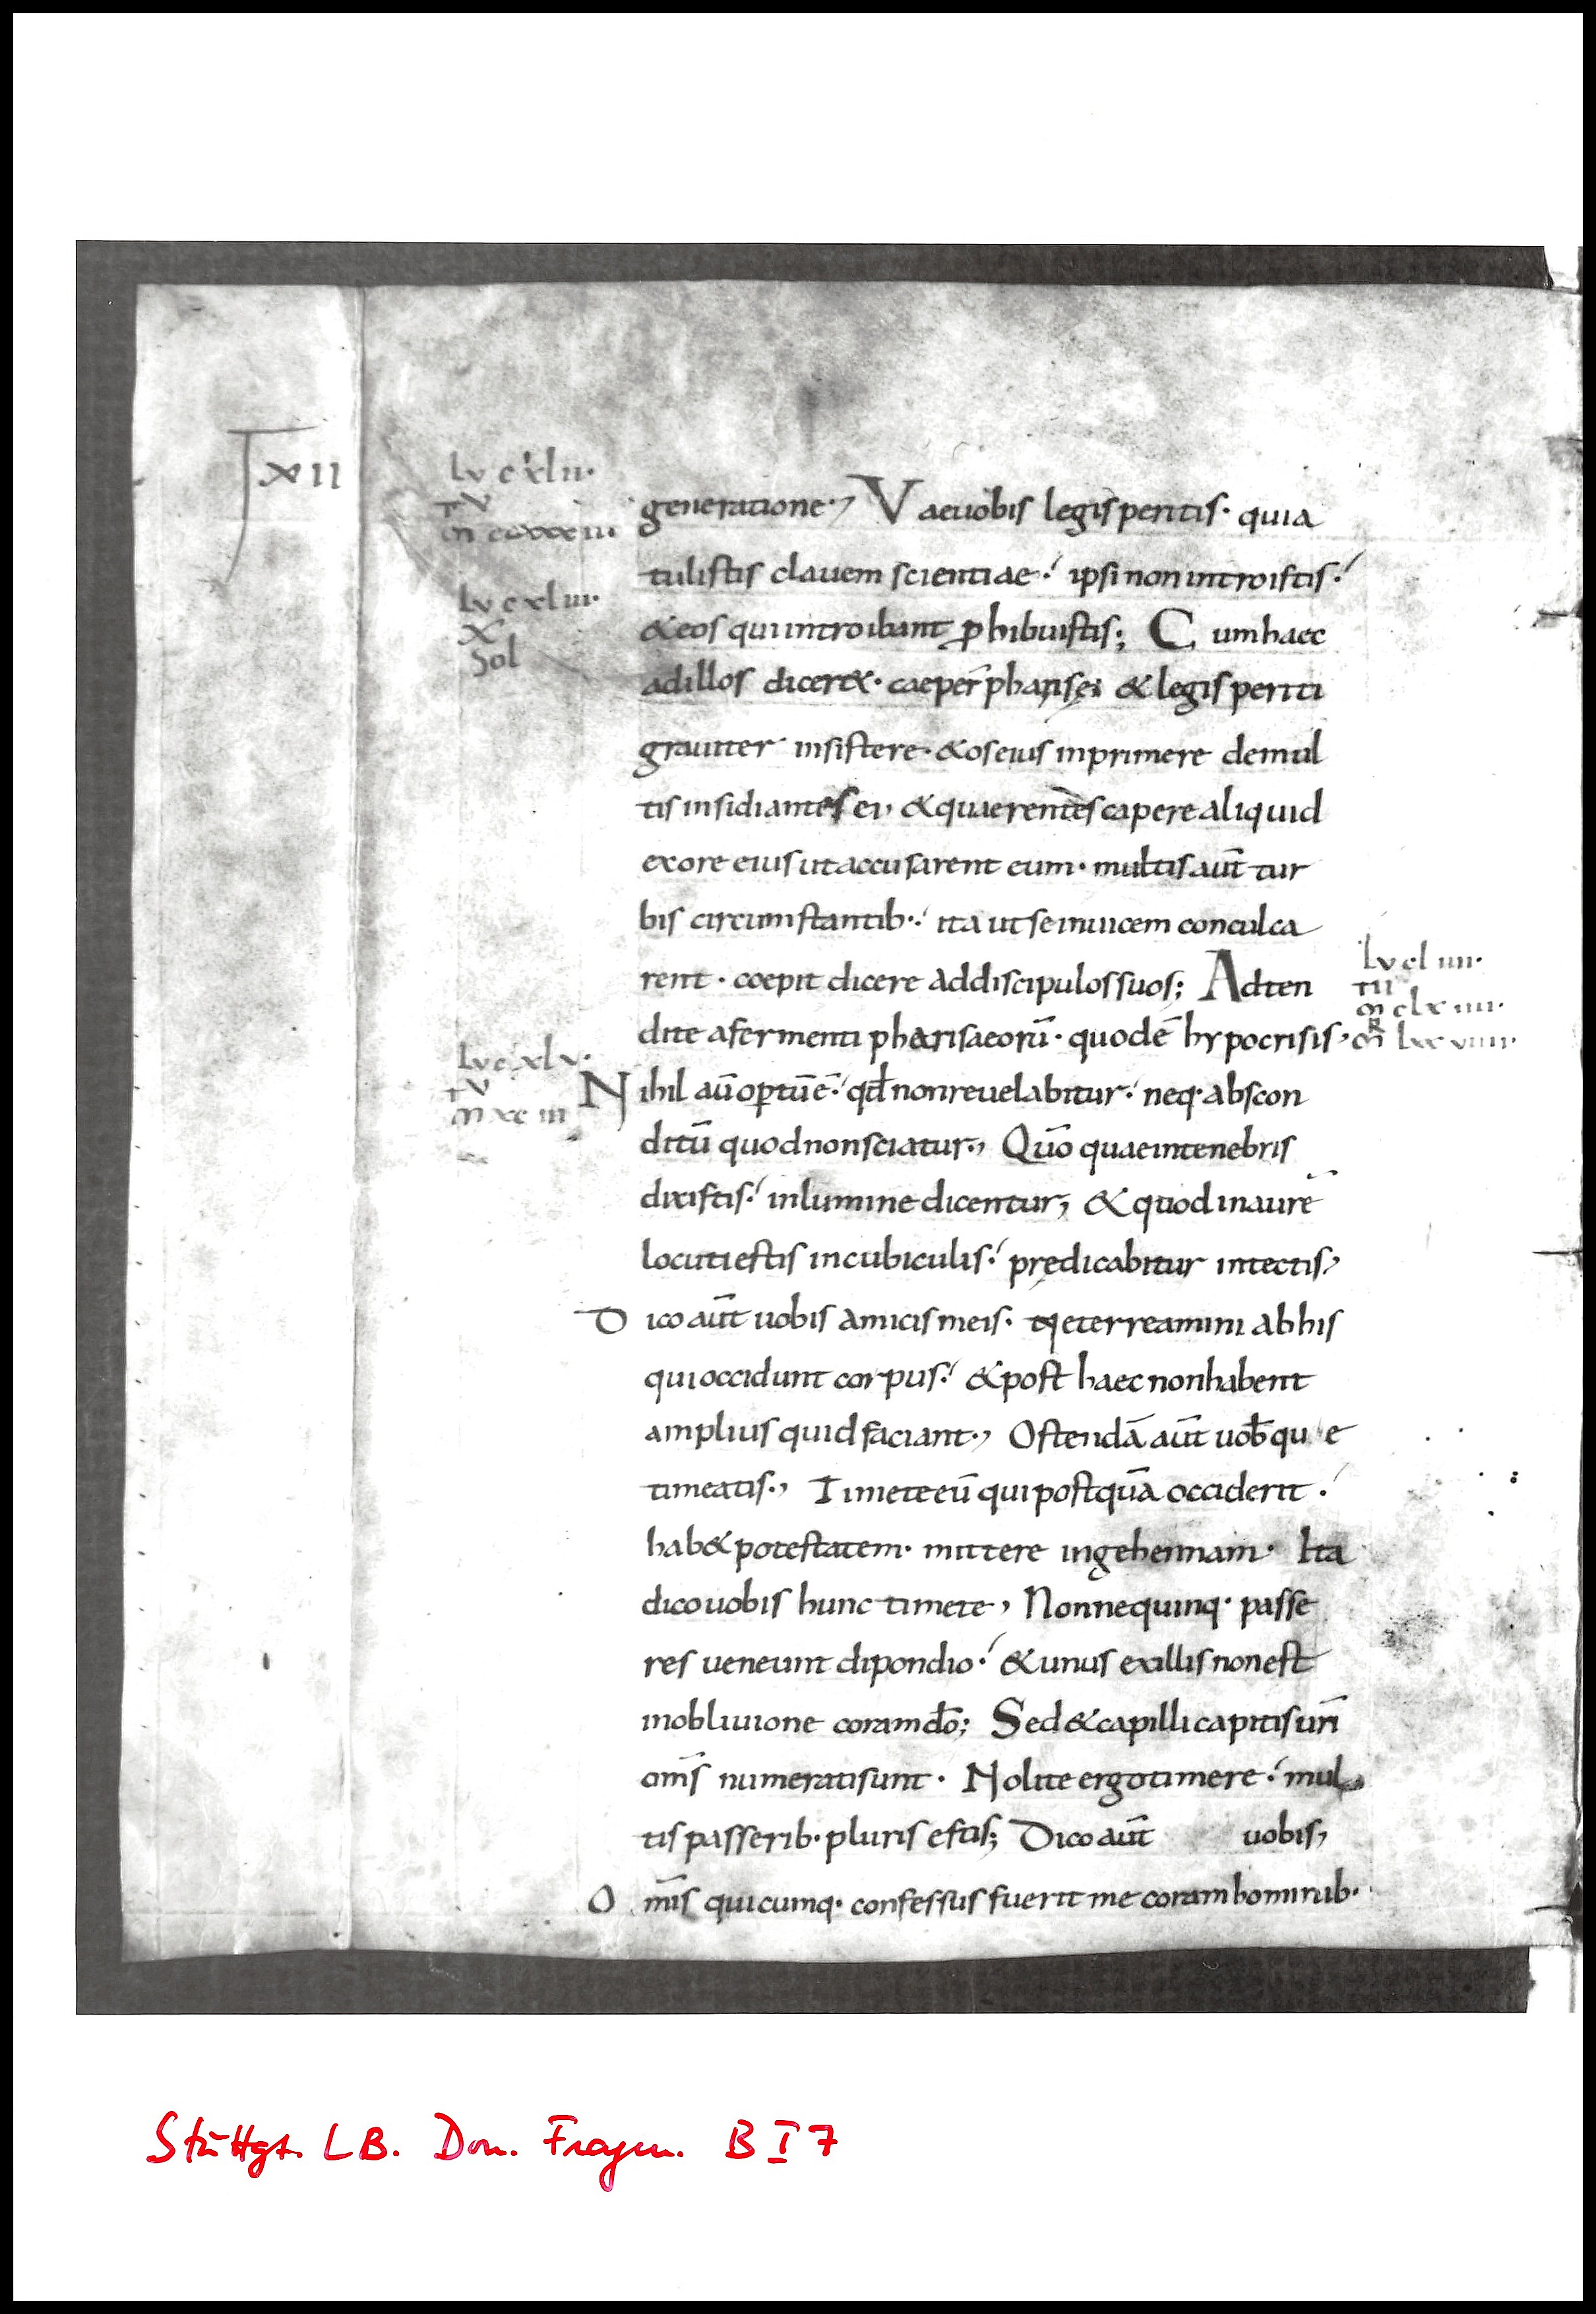 xii
Lu cxlii·
v
m ccxxxiii·
generatione·, Vaeuobis legisperitis· quia
tulistis clauem scientiae· ipsi non introistis·
Lu cxliii·
&eos qui introibant ꝓhibuistis; Cum haec
x
Sol
ad illos dicer&· caeper̄ pharisei & legis periti
grauiter insistere· & os eius inprimere de mul
tis insidiantes ei, & quaerentes capere aliquid
ex ore eius ut accusarent eum· multis aut̄ tur
bis circumstantib·· ita ut se inuicem conculca
rent· coepit dicere ad discipulos suos; Adten
Lu cl iiii·
ii
m clx iiii·
dite a fermenti pharisaeorū· quod ē hypocrisis·
m̄ lxx viiii·
Lu cxlv·
v
m xc iii
Nihil aū opertū ē· qd̄ non reuelabitur· neq· abscon
ditū quod non sciatur·, Qūo quae in tenebris
dixistis· in lumine dicentur, & quod in aurē
locuti estis in cubiculis· prędicabitur in tectis,
Dico aut̄ uobis amicis meis· ne terreamini ab his
qui occidunt corpus· & post haec non habent
amplius quid faciant·, Ostendā aut̄ uob̄ qu e
timeatis·, Timete eū qui postquā occiderit·
hab& potestatem· mittere in gehennam· Ita
dico uobis hunc timete, Nonne quinq· passe
res ueneunt dipondio· & unus ex illis non est
in obliuione coram dō; Sed & capilli capitis urī
om̄s numerati sunt· Nolite ergo timere· mul
tis passerib· pluris estis; Dico aut̄ uobis,
Om̄is quicumq· confessus fuerit me coram hominib·
Stuttgt. LB. Don. Fragm. B I 7